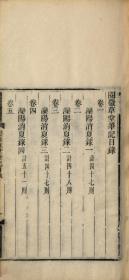 閱微草堂筆記目錄
卷一
灤陽消夏錄一 計四十七則
卷二
灤陽消夏錄二 計四十八則
卷三
灤陽消夏錄三 計四十七則
卷四
灤陽消夏錄四 計五十一則
卷五